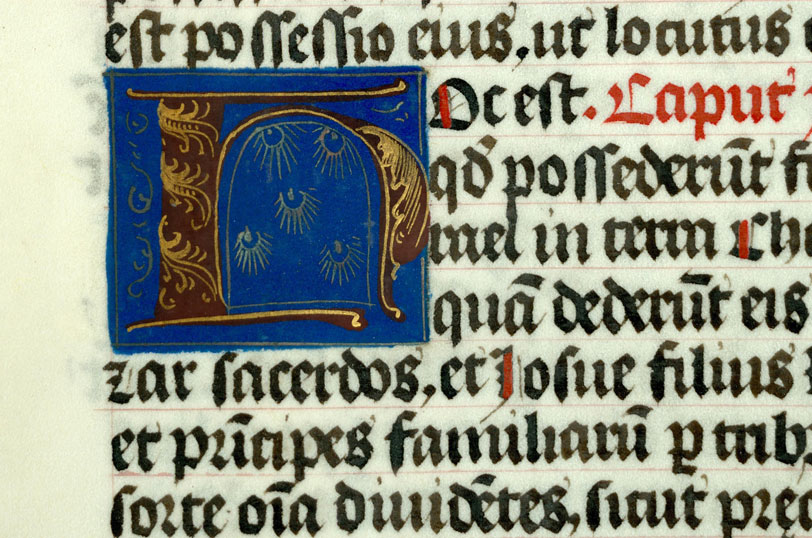 est possessio eius, ut locutus
HOc est. Caput
qd̄ possederūt fi
rael in terra Cha
quā dederūt eis
zar sacerdos, et Josue filius
et prīcipes familiarū ꝑ trib
sorte oīa diuidētes, sicut pre